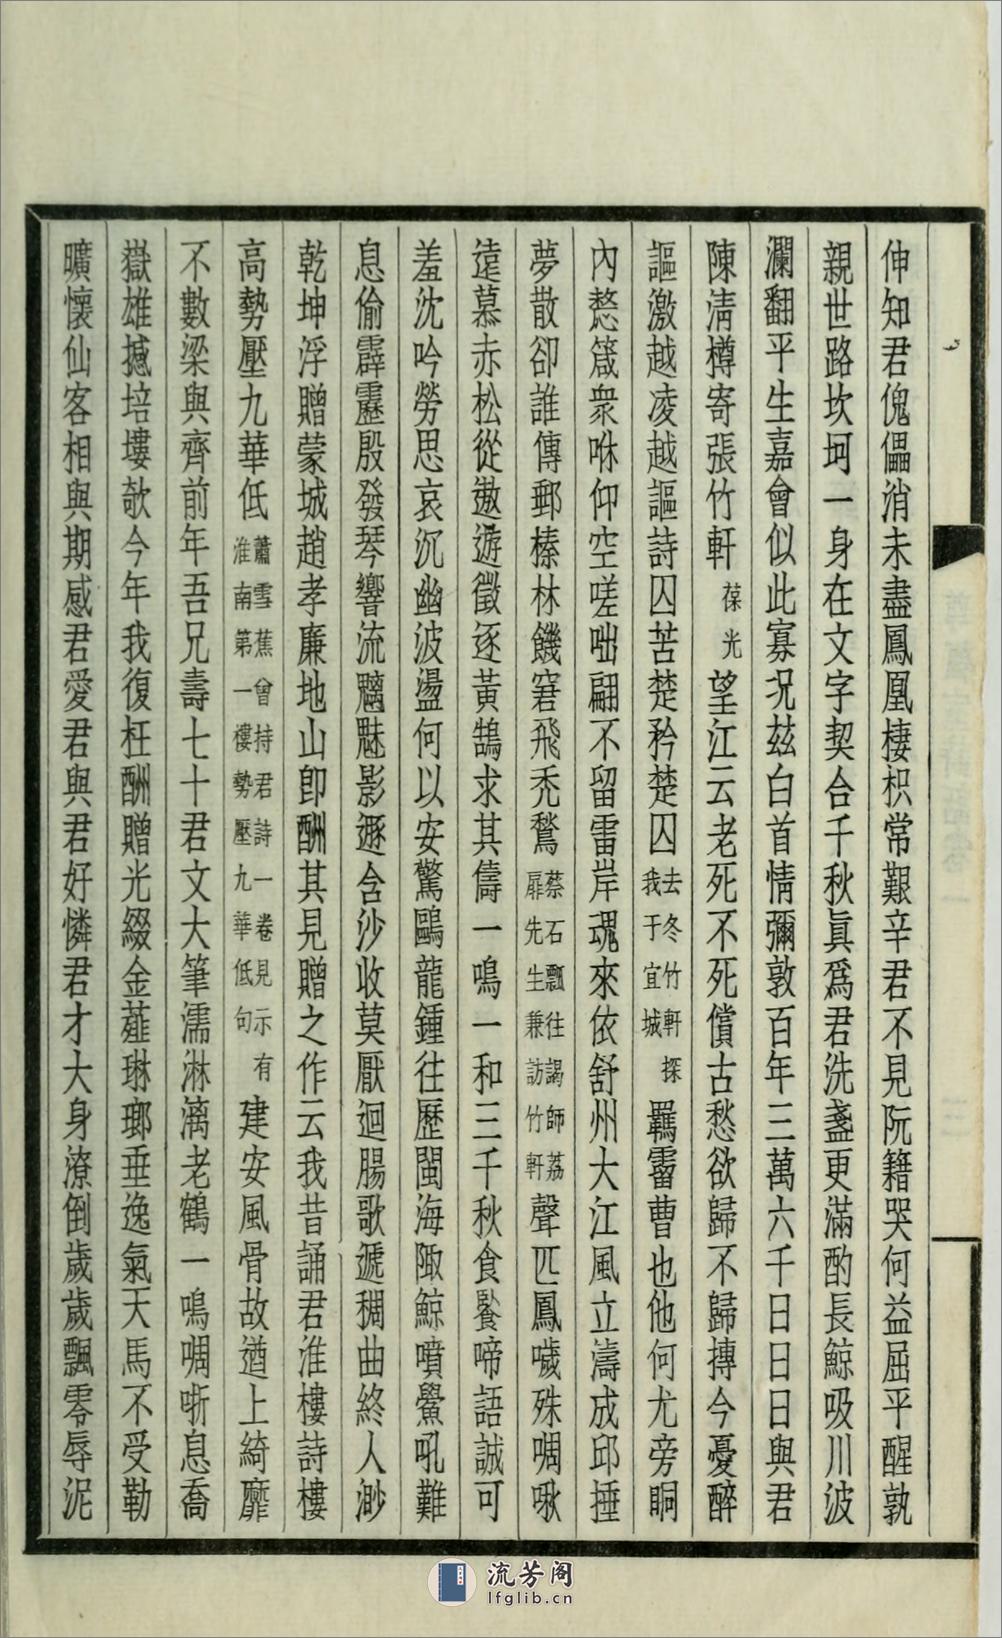 伸知君傀儡消未盡鳳凰棲枳常艱辛君不見阮籍哭何益屈平醒孰
親世路坎坷一身在文字契合千秋眞爲君洗盞更滿酌長鯨吸川波
瀾翻平生嘉會似此寡況兹白首情彌敦百年三萬六千日日日與君
陳淸樽寄張竹軒葆光望江云老死不死償古愁欲歸不歸摶今憂醉
謳激越凌越謳詩囚苦楚矜楚囚去冬竹軒探我于宜城羈霤曹也他何尤旁眮
內慙箴衆咻仰空嗟咄翩不留雷岸魂來依舒州大江風立濤成邱捶
夢散卻誰傳郵榛林饑窘飛禿鶖蔡石瓢往謁師荔扉先生兼訪竹軒聲匹鳳噦殊啁啾
遠慕赤松從遨遊徵逐黃鵠求其儔一鳴一和三千秋食鬟啼語誠可
羞沈吟勞思哀沉幽波盪何以安驚鷗龍鍾往歷閩海陬鯨噴鱟吼難
息偷霹靂殷發琴響流魑魅影遯含沙收莫厭迴腸歌遞稠曲終人渺
乾坤浮贈蒙城趙孝廉地山卽酬其見贈之作云我昔誦君淮樓詩樓
高勢壓九華低蕭雪蕉曾持君詩一卷見示有淮南第一樓勢壓九華低句建安風骨故遒上綺靡
不數梁與齊前年吾兄壽七十君文大筆濡淋漓老鶴一鳴啁哳息喬
嶽雄撼培塿欹今年我復枉酬贈光綴金薤琳瑯垂逸氣天馬不受勒
曠懷仙客相與期感君愛君與君好憐君才大身潦倒歲歲飄零辱泥
流芳阁
lfglib.cn